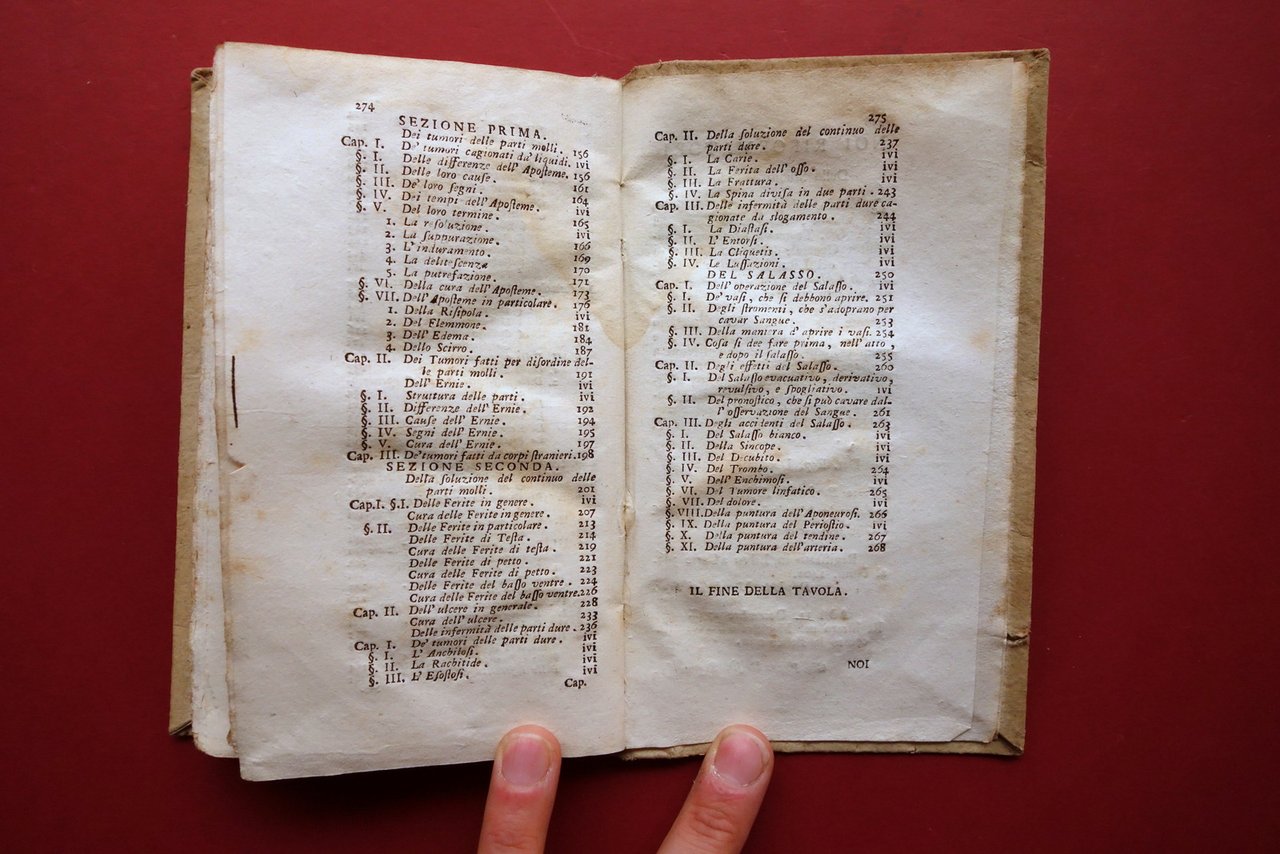 274
SEZIONE PRIMA.
Dei tumori delle parti molli. 156
Cap. I. De' tumori cagionati da' liquidi. ivi
§. I. Delle differenze dell' Aposteme. 156
§. II. Delle loro cause. 161
§. III. De' loro segni. 164
§. IV. Dei tempi dell' Aposteme. ivi
§. V. Del loro termine. 165
1. La resoluzione. ivi
2. La suppurazione. 166
3. L'induramento. 169
4. La delitescenza 170
5. La putrefazione. 171
§. VI. Della cura dell' Aposteme. 173
§. VII. Dell' Aposteme in particolare. 176
1. Della Risipola. ivi
2. Del Flemmone. 181
3. Dell' Edema. 184
4. Dello Scirro. 187
Cap. II. Dei Tumori fatti per disordine del-
le parti molli. 191
Dell' Ernie. ivi
§. I. Struttura delle parti. ivi
§. II. Differenze dell' Ernie. 192
§. III. Cause dell' Ernie. 194
§. IV. Segni dell' Ernie. 195
§. V. Cura dell' Ernie. 197
Cap. III. De' tumori fatti da corpi stranieri. 198
SEZIONE SECONDA.
Della soluzione del continuo delle
parti molli. 201
Cap. I. §. I. Delle Ferite in genere. ivi
Cura delle Ferite in genere. 207
§. II. Delle Ferite in particolare. 213
Delle Ferite di Testa. 214
Cura delle Ferite di testa. 219
Delle Ferite di petto. 221
Cura delle Ferite di petto. 223
Delle Ferite del basso ventre. 224
Cura delle Ferite del basso ventre. 226
Cap. II. Dell' ulcere in generale. 228
Cura dell' ulcere. 233
Delle infermità delle parti dure. 236
Cap. I. De' tumori delle parti dure. ivi
§. I. L' Anchilosi. ivi
§. II. La Rachitide. ivi
§. III. L' Esostosi. ivi
Cap.
275
Cap. II. Della soluzione del continuo delle
parti dure. 237
§. I. La Carie. ivi
§. II. La Ferita dell' osso. ivi
§. III. La Frattura. ivi
§. IV. La Spina divisa in due parti. 243
Cap. III. Delle infermità delle parti dure ca-
gionate da slogamento. 244
§. I. La Diastasi. ivi
§. II. L' Entorsi. ivi
§. III. La Cliquetis. ivi
§. IV. Le Lussazioni. ivi
DEL SALASSO. 250
Cap. I. Dell' operazione del Salasso. ivi
§. I. De' vasi, che si debbono aprire. 251
§. II. Degli stromenti, che s'adoprano per
cavar Sangue. 253
§. III. Della maniera d'aprire i vasi. 254
§. IV. Cosa si dee fare prima, nell' atto,
e dopo il salasso. 255
Cap. II. Degli effetti del Salasso. 260
§. I. Del Salasso evacuativo, derivativo,
revulsivo, e spogliativo. ivi
§. II. Del pronostico, che si può cavare dal-
l' osservazione del Sangue. 261
Cap. III. Degli accidenti del Salasso. 263
§. I. Del Salasso bianco. ivi
§. II. Della Sincope. ivi
§. III. Del Decubito. ivi
§. IV. Del Trombo. 264
§. V. Dell' Enchimosi. ivi
§. VI. Del Tumore linfatico. 265
§. VII. Del dolore. ivi
§. VIII. Della puntura dell' Aponeurosi. 266
§. IX. Della puntura del Periostio. ivi
§. X. Della puntura del tendine. 267
§. XI. Della puntura dell' arteria. 268
IL FINE DELLA TAVOLA.
NOI